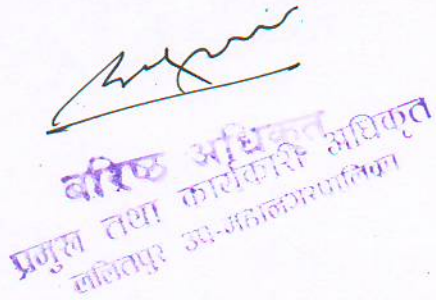 बरिष्ठ अधिकृत
प्रमुख तथा कार्यकारी अधिकृत
ललितपुर उप-महानगरपालिका